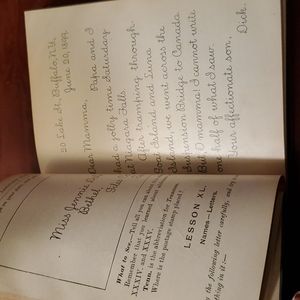 20 Lake St., Buffalo, N.Y.,
June 20, 1899.
Dear Mamma,
Papa and I
had a jolly time Saturday
at Niagara Falls.
After tramping through
Goat Island and Luna
Island, we went across the
Suspension Bridge to Canada.
But O mamma! I cannot write
one half of what I saw.
Your affectionate son,
Dick.
Miss Jennie
Bethel,
What to See.—Tell all you
Remember that you learned about
XXXIV. and XXXV.
Tenn. is the abbreviation for Tennessee.
Where is the postage stamp placed?
LESSON XL.
Names—Letters.
the following letter carefully, and
thing in it:—